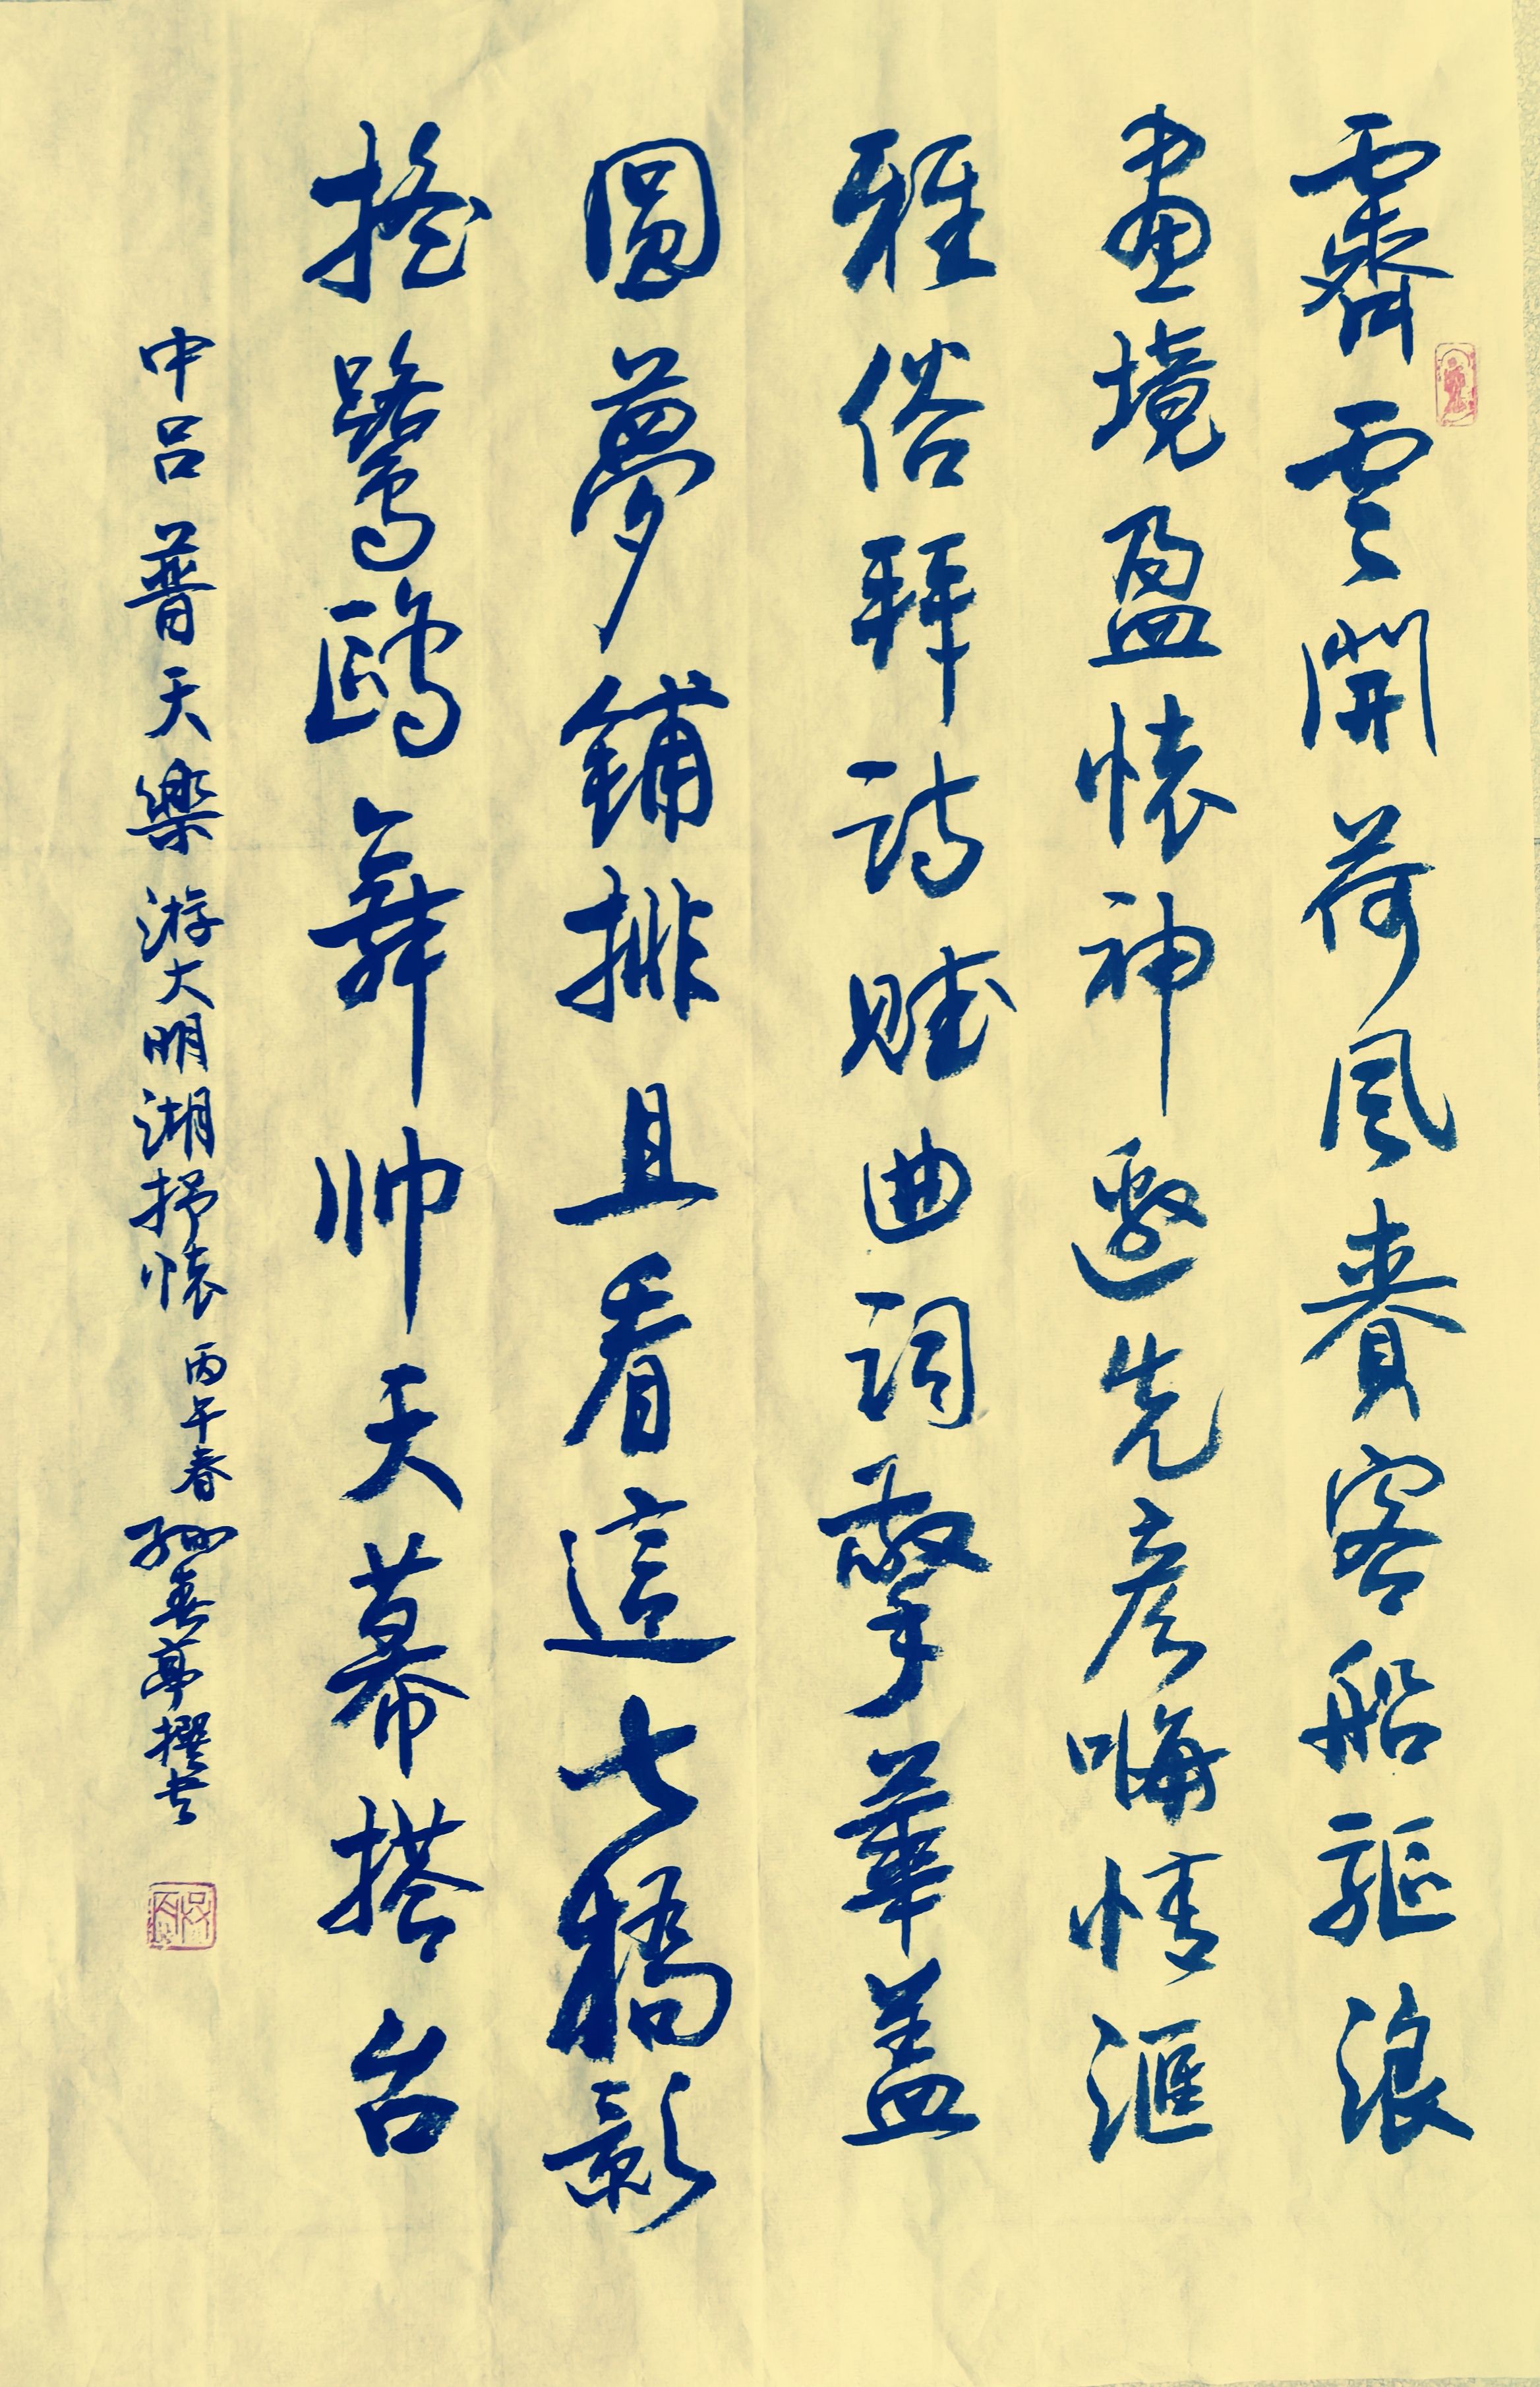 霽雲開荷風賚客船驅浪
畫境盈懷神邀先彥晦情滙
雅俗拜詩賦曲詞擎華蓋
圓夢鋪排且看這七橋影
搖鷺鷗舞帅天幕搭台
中吕普天樂游大明湖抒懷丙午春孫春亭撰书